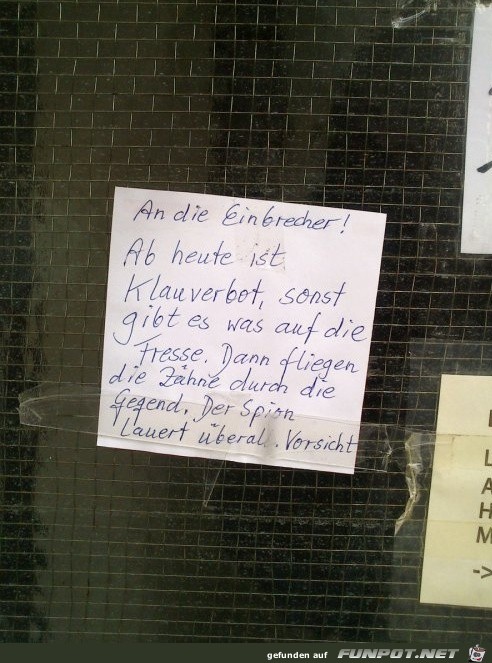 An die Einbrecher!
Ab heute ist
Klauverbot, sonst
gibt es was auf die
Fresse. Dann fliegen
die Zähne durch die
Gegend. Der Spion
lauert überal. Vorsicht
L
A
H
M
->
gefunden auf FUNPOT.NET